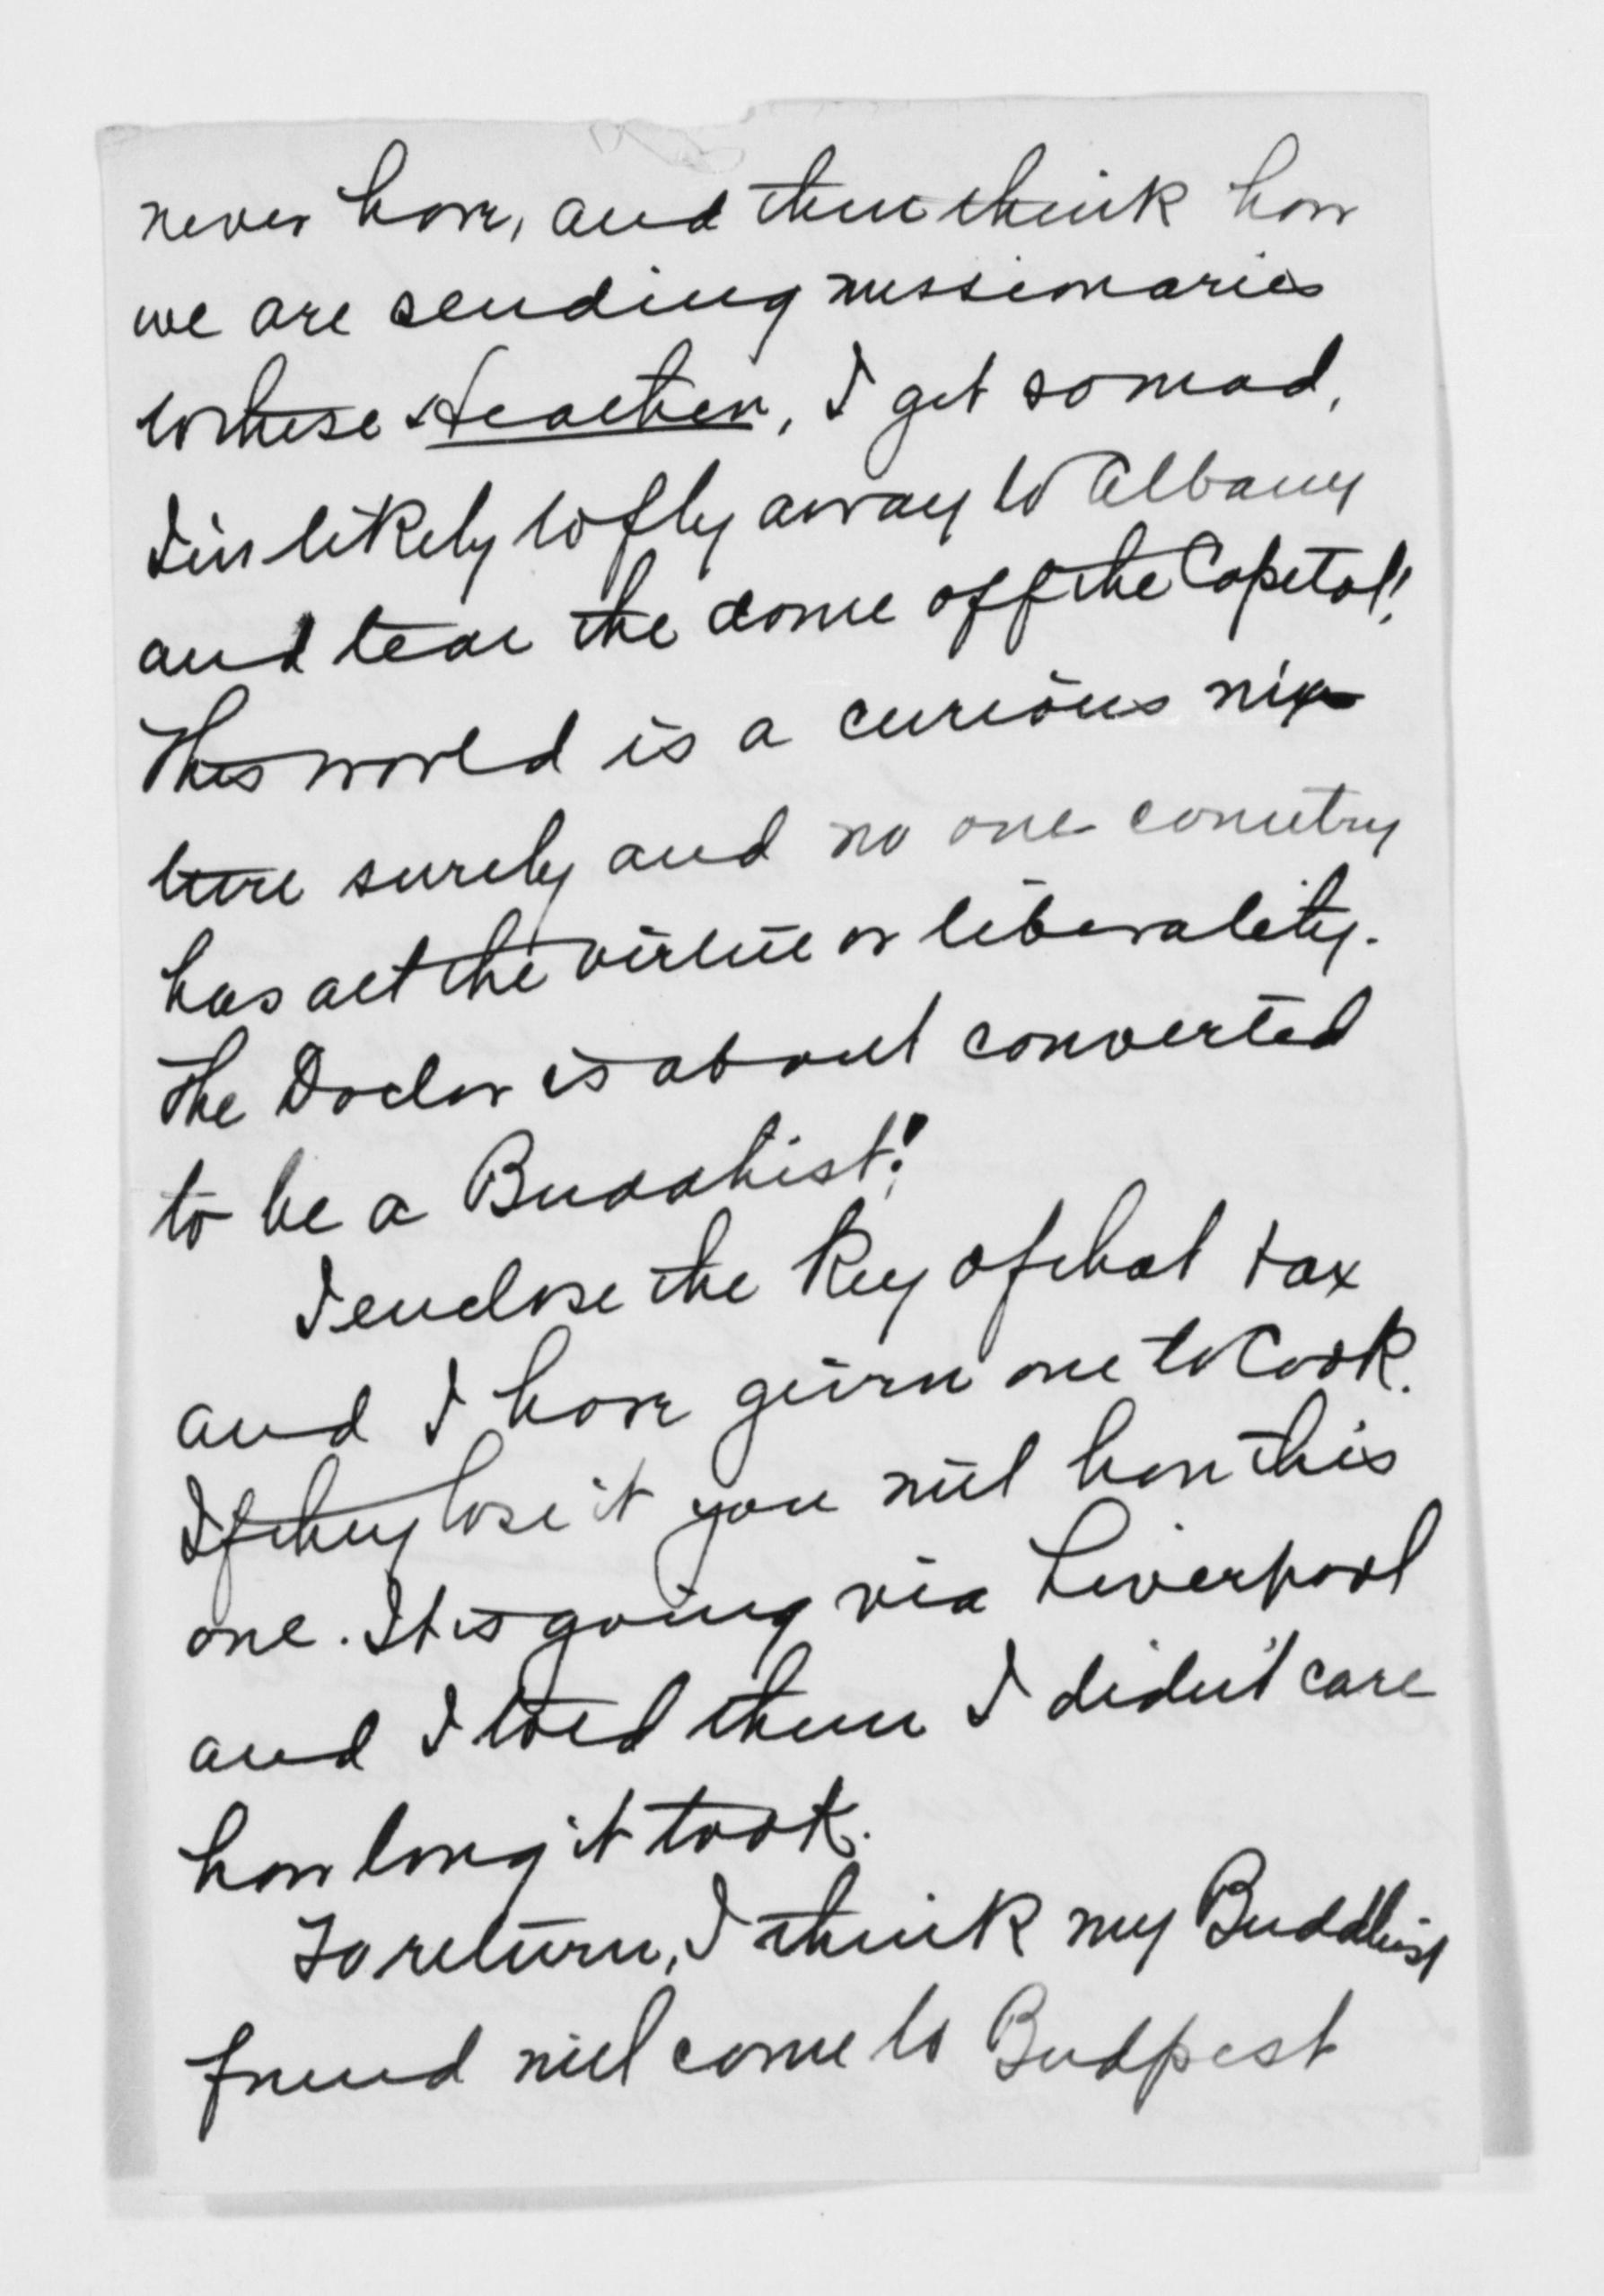 never have, and then think how
we are sending missionaries
to these Heathen, I get so mad,
I'm likely to fly away to Albany
and tear the dome off the Capitol!
This world is a curious mix
ture surely and no one country
has all the virtue or liberality.
The Doctor is about converted
to be a Buddhist!
I enclose the key of that tax
and I have given one to Cook.
If they lose it you will have this
one. It is going via Liverpool
and I told them I didn't care
how long it took.
To return, I think my Buddhist
friend will come to Budpest